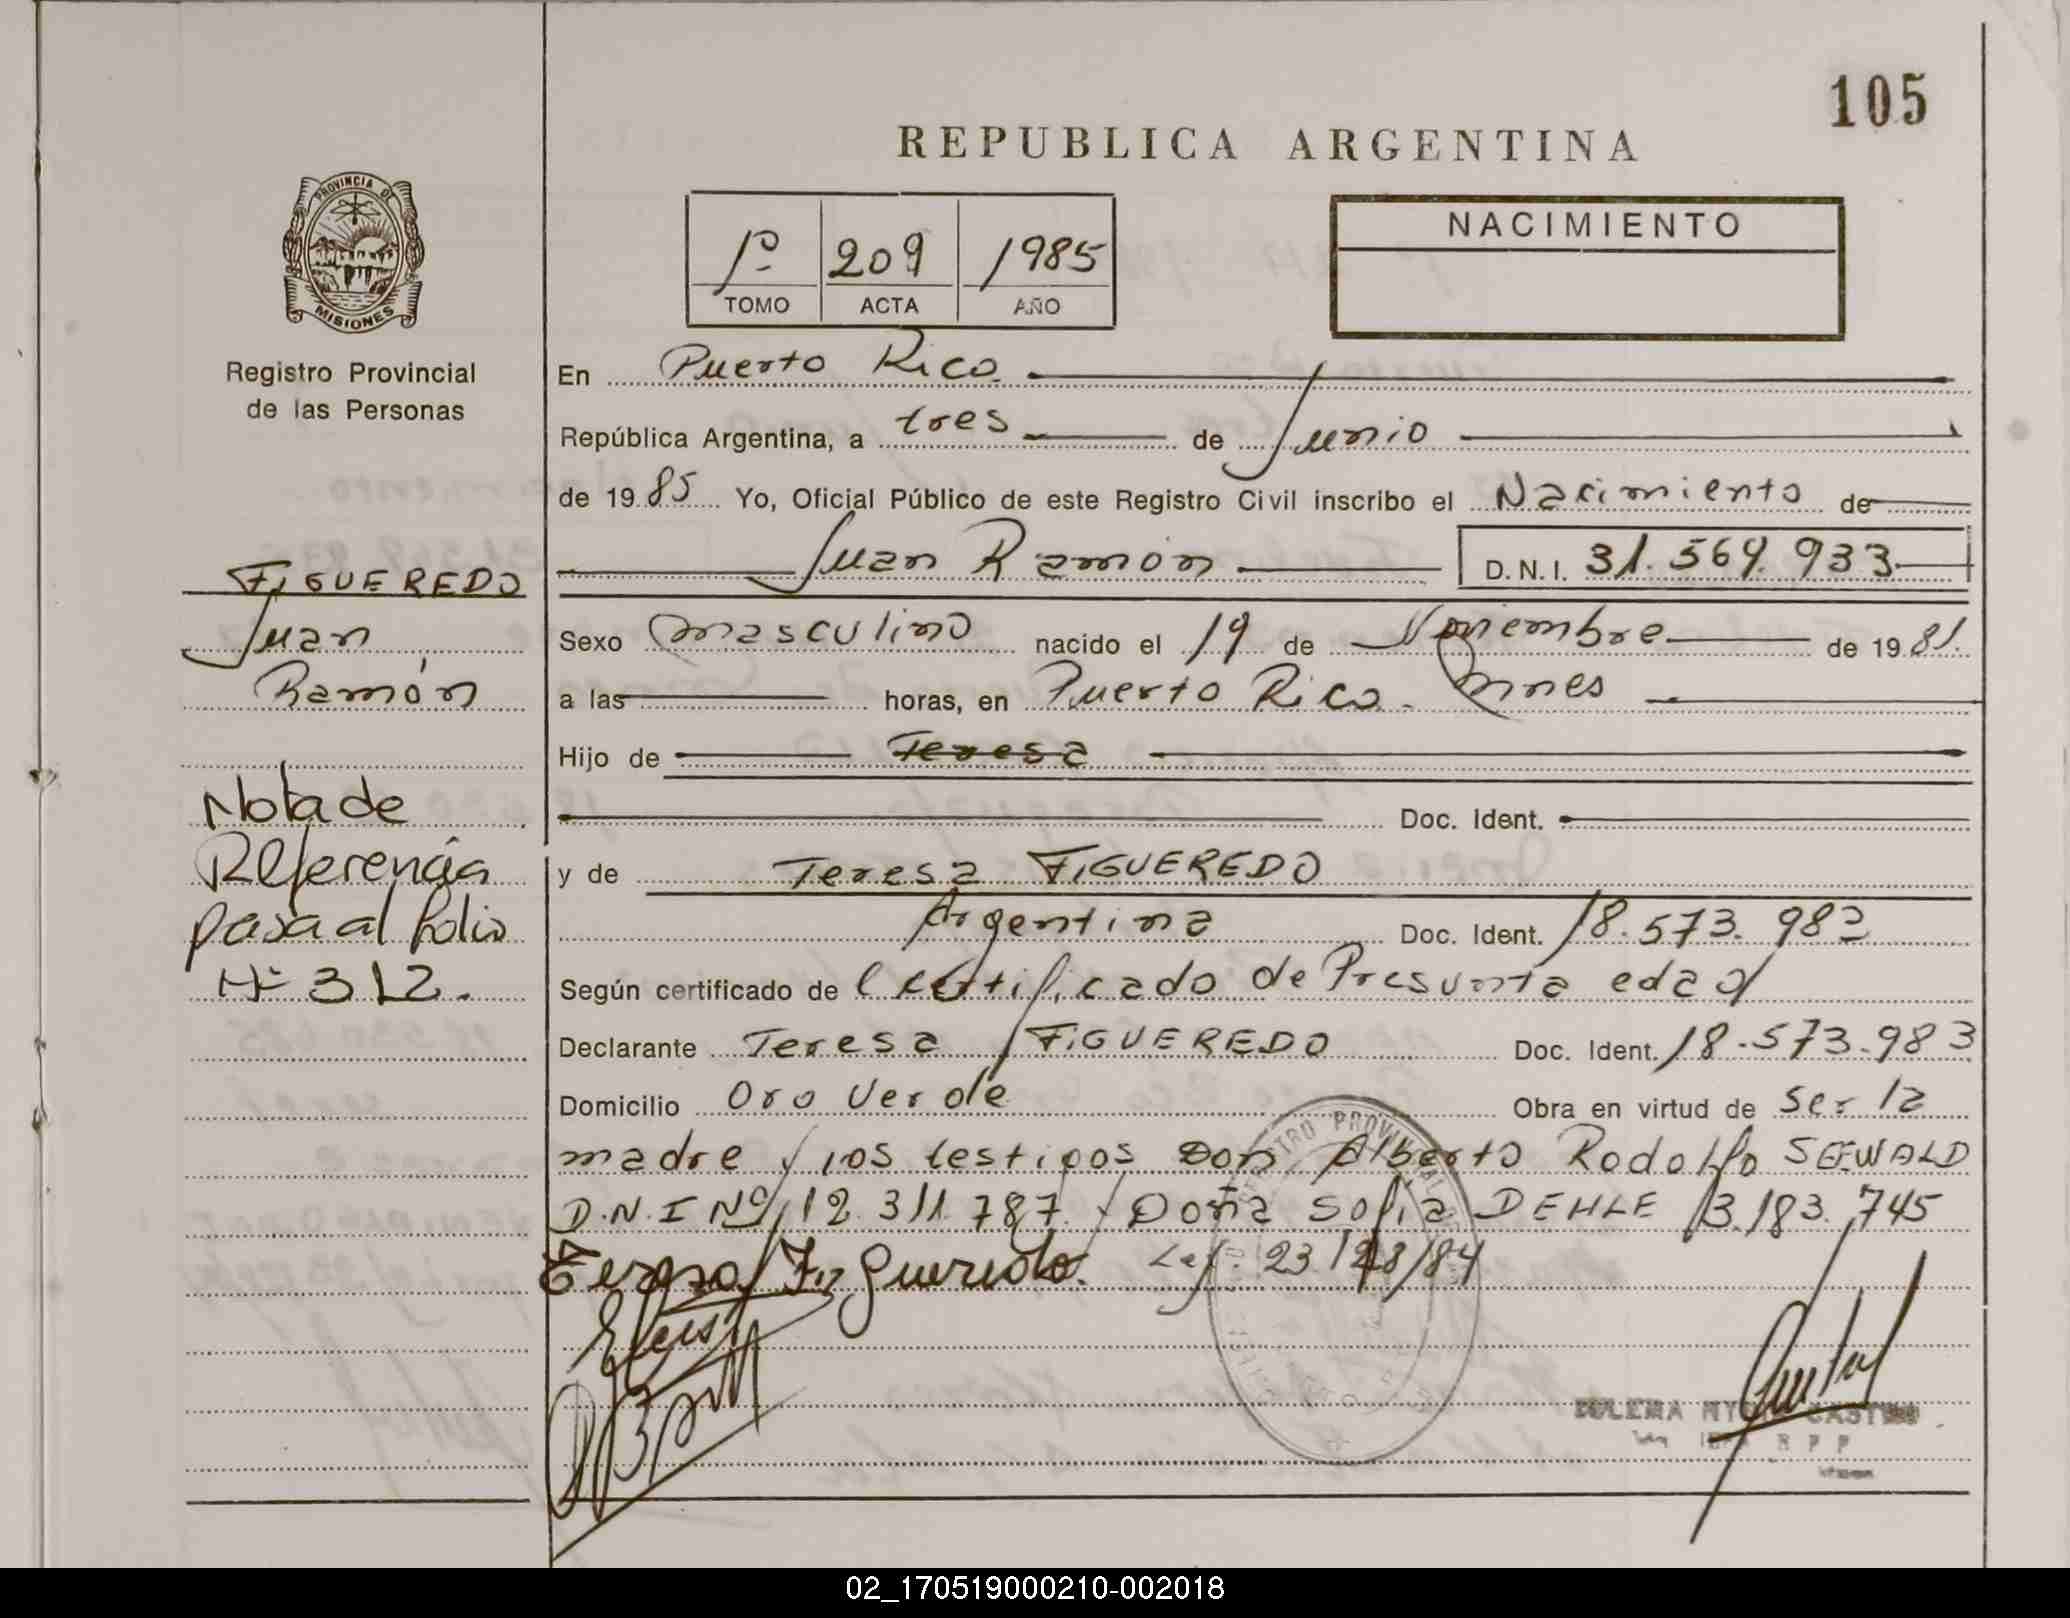 105
REPUBLICA ARGENTINA
PROVINCIA DE
MISIONES
Registro Provincial
de las Personas
1º 209 1985
TOMO ACTA AÑO
NACIMIENTO
En Puerto Rico
República Argentina, a tres de Junio
de 1985 Yo, Oficial Público de este Registro Civil inscribo el Nacimiento de
Juan Ramón D.N.I. 31.569.933
FIGUEREDO
Juan
Ramón
Sexo masculino nacido el 19 de Noviembre de 1981.
a las horas, en Puerto Rico. Mnes
Hijo de Teresa
Doc. Ident.
Nota de
Referencia
pasa al folio
Nº 312.
y de Teresa FIGUEREDO
Argentina Doc. Ident. 18.573.983
Según certificado de Certificado de Presunta edad
Declarante Teresa FIGUEREDO Doc. Ident. 18.573.983
Domicilio Oro Verde Obra en virtud de Ser la
madre y los testigos Don Alberto Rodolfo SEEWALD
D.N.I Nº 12.311.787 y Doña Sofia DEHLE 3.183.745
Teresa Figueredo. Ley: 23128/84
REGISTRO PROVINCIAL
CASTRO
R P P
02_170519000210-002018